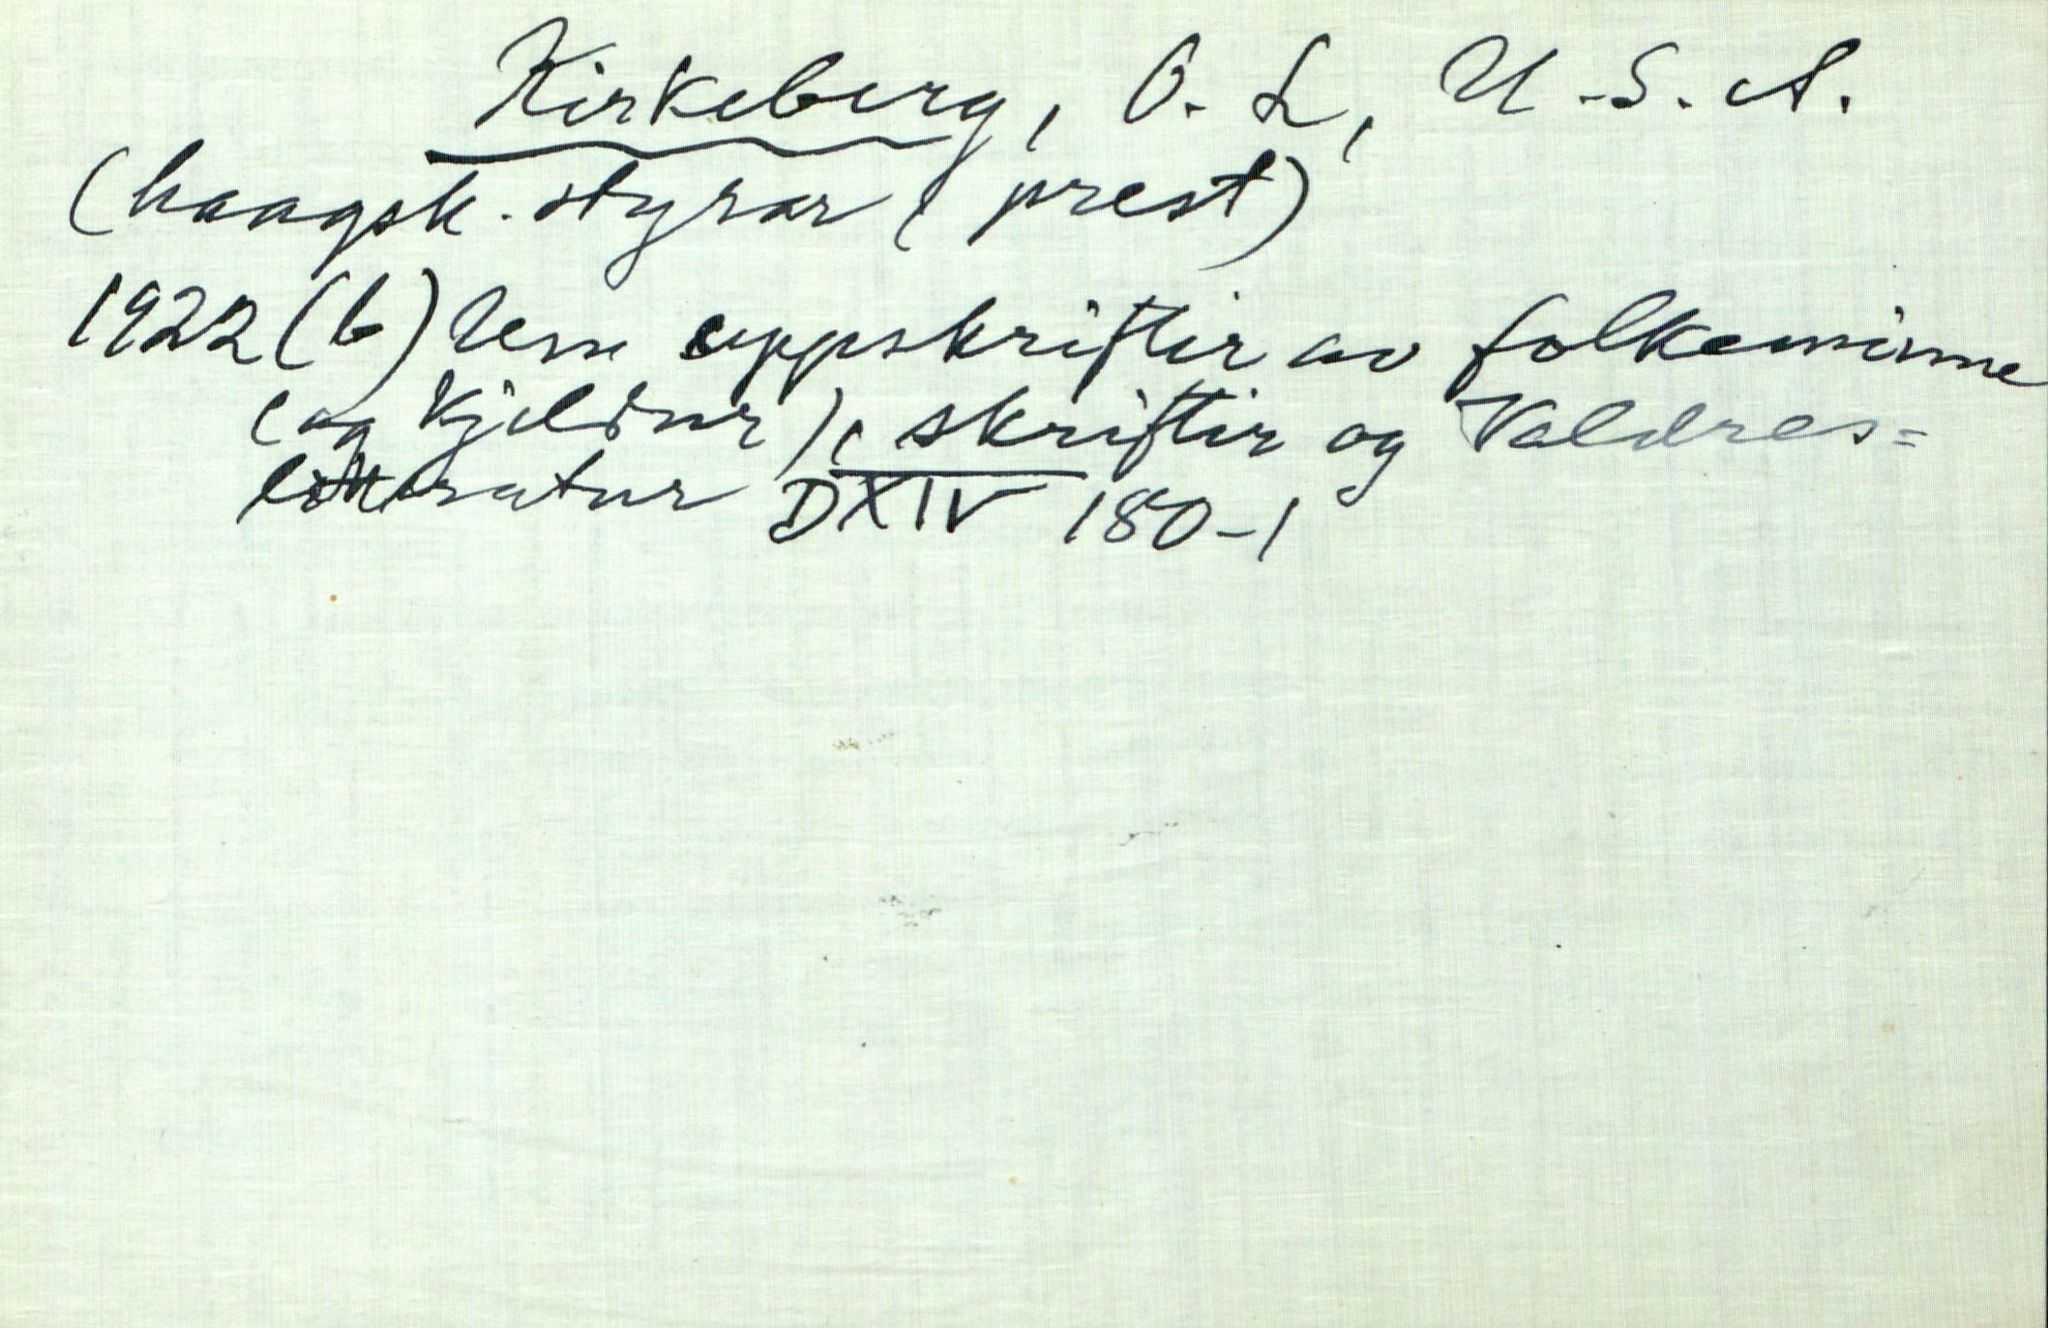 Kirkeberg, O. L, U.S.A.
(haagsk. styrar, prest)
1922 (b) Um uppskriftir av folkeminne
(og kjeldur), skriftir og Valdres=
litteratur DXIV 180-1